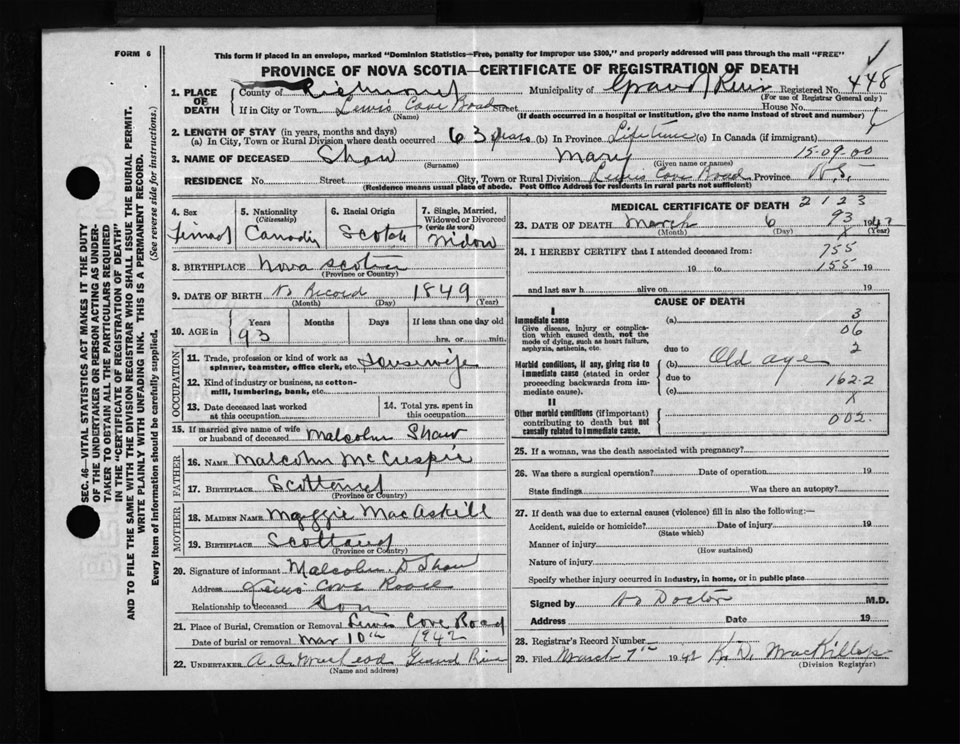 FORM 6
This form if placed in an envelope, marked "Dominion Statistics—Free, penalty for improper use $300," and properly addressed will pass through the mail "FREE"
PROVINCE OF NOVA SCOTIA—CERTIFICATE OF REGISTRATION OF DEATH
1. PLACE OF DEATH
County of Richmond Municipality of Grand River Registered No. 448
(For use of Registrar General only)
If in City or Town Lewis Cove Road Street House No.
(Name) (If death occurred in a hospital or institution, give the name instead of street and number)
2. LENGTH OF STAY (in years, months and days)
(a) In City, Town or Rural Division where death occurred 63 years (b) In Province Life time (c) In Canada (if immigrant)
3. NAME OF DECEASED Shaw Mary 15-09.00
(Surname) (Given name or names)
RESIDENCE No. Street City, Town or Rural Division Lewis Cove Road Province N.S.
(Residence means usual place of abode. Post Office Address for residents in rural parts not sufficient)
SEC. 46—VITAL STATISTICS ACT MAKES IT THE DUTY
OF THE UNDERTAKER OR PERSON ACTING AS UNDER-
TAKER TO OBTAIN ALL THE PARTICULARS REQUIRED
IN THE "CERTIFICATE OF REGISTRATION OF DEATH"
AND TO FILE THE SAME WITH THE DIVISION REGISTRAR WHO SHALL ISSUE THE BURIAL PERMIT.
WRITE PLAINLY WITH UNFADING INK. THIS IS A PERMANENT RECORD.
Every item of information should be carefully supplied. (See reverse side for instructions.)
4. Sex
5. Nationality (Citizenship)
6. Racial Origin
7. Single, Married, Widowed or Divorced (write the word)
Scotch Widow
8. BIRTHPLACE Nova Scotia
(Province or Country)
9. DATE OF BIRTH No Record 1849
(Month) (Day) (Year)
10. AGE in Years Months Days If less than one day old
93 hrs. or min.
OCCUPATION
11. Trade, profession or kind of work as spinner, teamster, office clerk, etc. Housewife
12. Kind of industry or business, as cotton-mill, lumbering, bank, etc.
13. Date deceased last worked at this occupation
14. Total yrs. spent in this occupation
15. If married give name of wife or husband of deceased Malcolm Shaw
FATHER
16. NAME Malcolm
17. BIRTHPLACE Scotland
(Province or Country)
MOTHER
18. MAIDEN NAME Maggie MacAskill
19. BIRTHPLACE Scotland
(Province or Country)
20. Signature of informant Malcolm D Shaw
Address Lewis Cove Road
Relationship to deceased Son
21. Place of Burial, Cremation or Removal Lewis Cove Road
Date of burial or removal Mar 10th 1942
22. UNDERTAKER A. A. MacLeod Grand River
(Name and address)
MEDICAL CERTIFICATE OF DEATH 2123
23. DATE OF DEATH March 6 93 1942
(Month) (Day) (Year)
24. I HEREBY CERTIFY that I attended deceased from: 755
19 to 155 19
and last saw h alive on 19
CAUSE OF DEATH
I
Immediate cause (a) 3
Give disease, injury or complication which caused death, not the mode of dying, such as heart failure, asphyxia, asthenia, etc. 06
due to 2
Morbid conditions, if any, giving rise to immediate cause (stated in order proceeding backwards from immediate cause). (b) Old age
due to
(c) 162.2
X
II
Other morbid conditions (if important) contributing to death but not causally related to immediate cause. 002.
25. If a woman, was the death associated with pregnancy?
26. Was there a surgical operation? Date of operation 19
State findings Was there an autopsy?
27. If death was due to external causes (violence) fill in also the following:—
Accident, suicide or homicide? Date of injury 19
(State which)
Manner of injury
(How sustained)
Nature of injury
Specify whether injury occurred in industry, in home, or in public place
Signed by No Doctor M.D.
Address Date 19
28. Registrar's Record Number
29. Filed March 7th 1942 K. D. MacKillop
(Division Registrar)